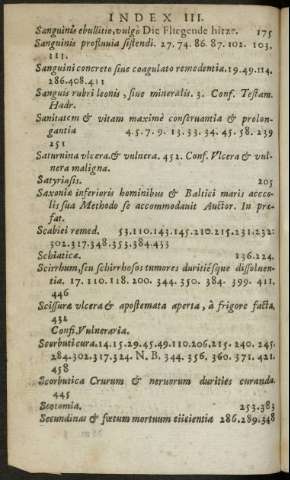 INDEX III.
Sanguinis ebullitio, vulgò Die Fliegende hitze. 175
Sanguinis profluvia sistendi. 27. 74. 86. 87. 102. 103.
111.
Sanguini concreto sive coagulato remedentia. 19.49.114.
286.408.411
Sanguis rubri leonis, sive mineralis. 3. Conf. Testam.
Hadr.
Sanitatem & vitam maximè conservantia & prolon-
gantia 4.5.7.9. 13.33.34.45.58. 239
251
Saturnina vlcera & vulnera. 452. Conf. Vlcera & vul-
nera maligna.
Satyriasis. 205
Saxoniæ inferioris hominibus & Baltici maris accco-
lis sua Methodo se accommodavit Auctor. In præ-
fat.
Scabiei remed. 53.110.143.145.210.215.231.232:
302.317.348.353.384.433
Schiatica. 136.224.
Scirrhum, seu schirrhosos tumores duritiésque dissolven-
tia. 17. 110.118. 200. 344. 350. 384. 399. 411.
446
Scissuræ vlcera & apostemata aperta, à frigore facta.
432
Conf. Vulneraria.
Scorbuti cura. 14.15.29.45.49.110.206.215. 240. 245.
284.302.317.324. N. B. 344. 356. 360. 371. 421.
458
Scorbutica Crurum & nervorum durities curanda.
445
Scotomia. 253.383
Secundinas & fœtum mortuum eiicientia 286.289.348